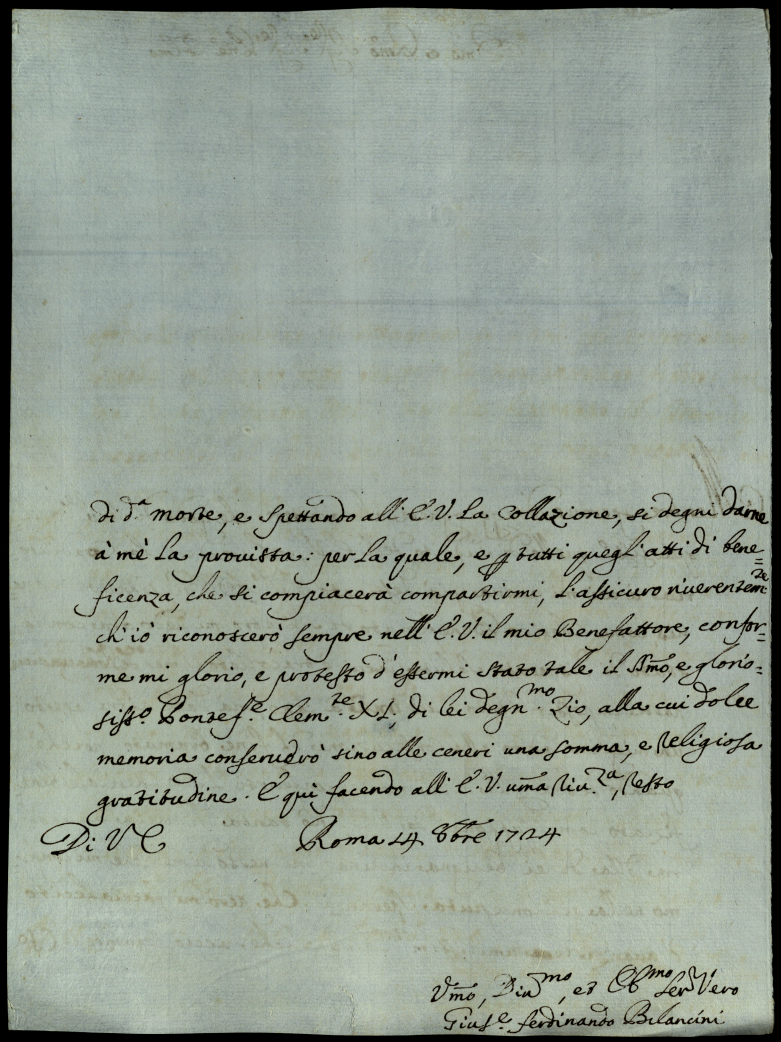 di d.ª morte, e spettando all' E.V. la Collazione, si degni darne
à mè la prouista: per la quale, e p tutti quegl'atti di bene=
ficenza, che si compiacerà compartirmi, l'assicuro riuerentem.te
ch'iò riconoscerò sempre nell' E.V. il mio Benefattore, confor=
me mi glorio, e protesto d'essermi stato tale il Smo, e glorio=
siss.º Pontef.e Clem.te XI, di lei degn.mo Zio, alla cui dolce
memoria conseruerò sino alle ceneri una somma, e Religiosa
gratitudine. E qui facendo all' E.V. uma Riu.za, resto
Di V E Roma 14 8bre 1724
Vmo, Diu.mo, et Obmo Ser.r Vero
Gius.e Ferdinando Bilancini